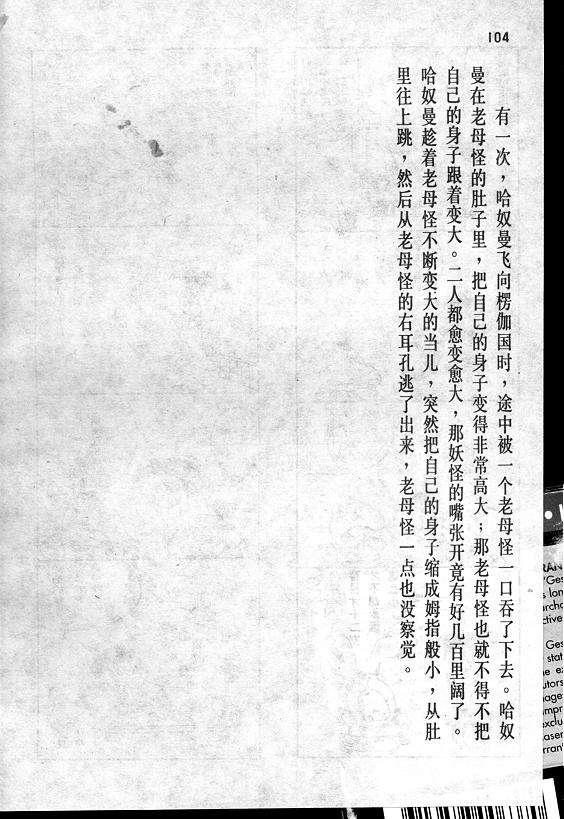 104
有一次，哈奴曼飞向楞伽国时，途中被一个老母怪一口吞了下去。哈奴
曼在老母怪的肚子里，把自己的身子变得非常高大；那老母怪也就不得不把
自己的身子跟着变大。二人都愈变愈大，那妖怪的嘴张开竟有好几百里阔了。
哈奴曼趁着老母怪不断变大的当儿，突然把自己的身子缩成姆指般小，从肚
里往上跳，然后从老母怪的右耳孔逃了出来，老母怪一点也没察觉。